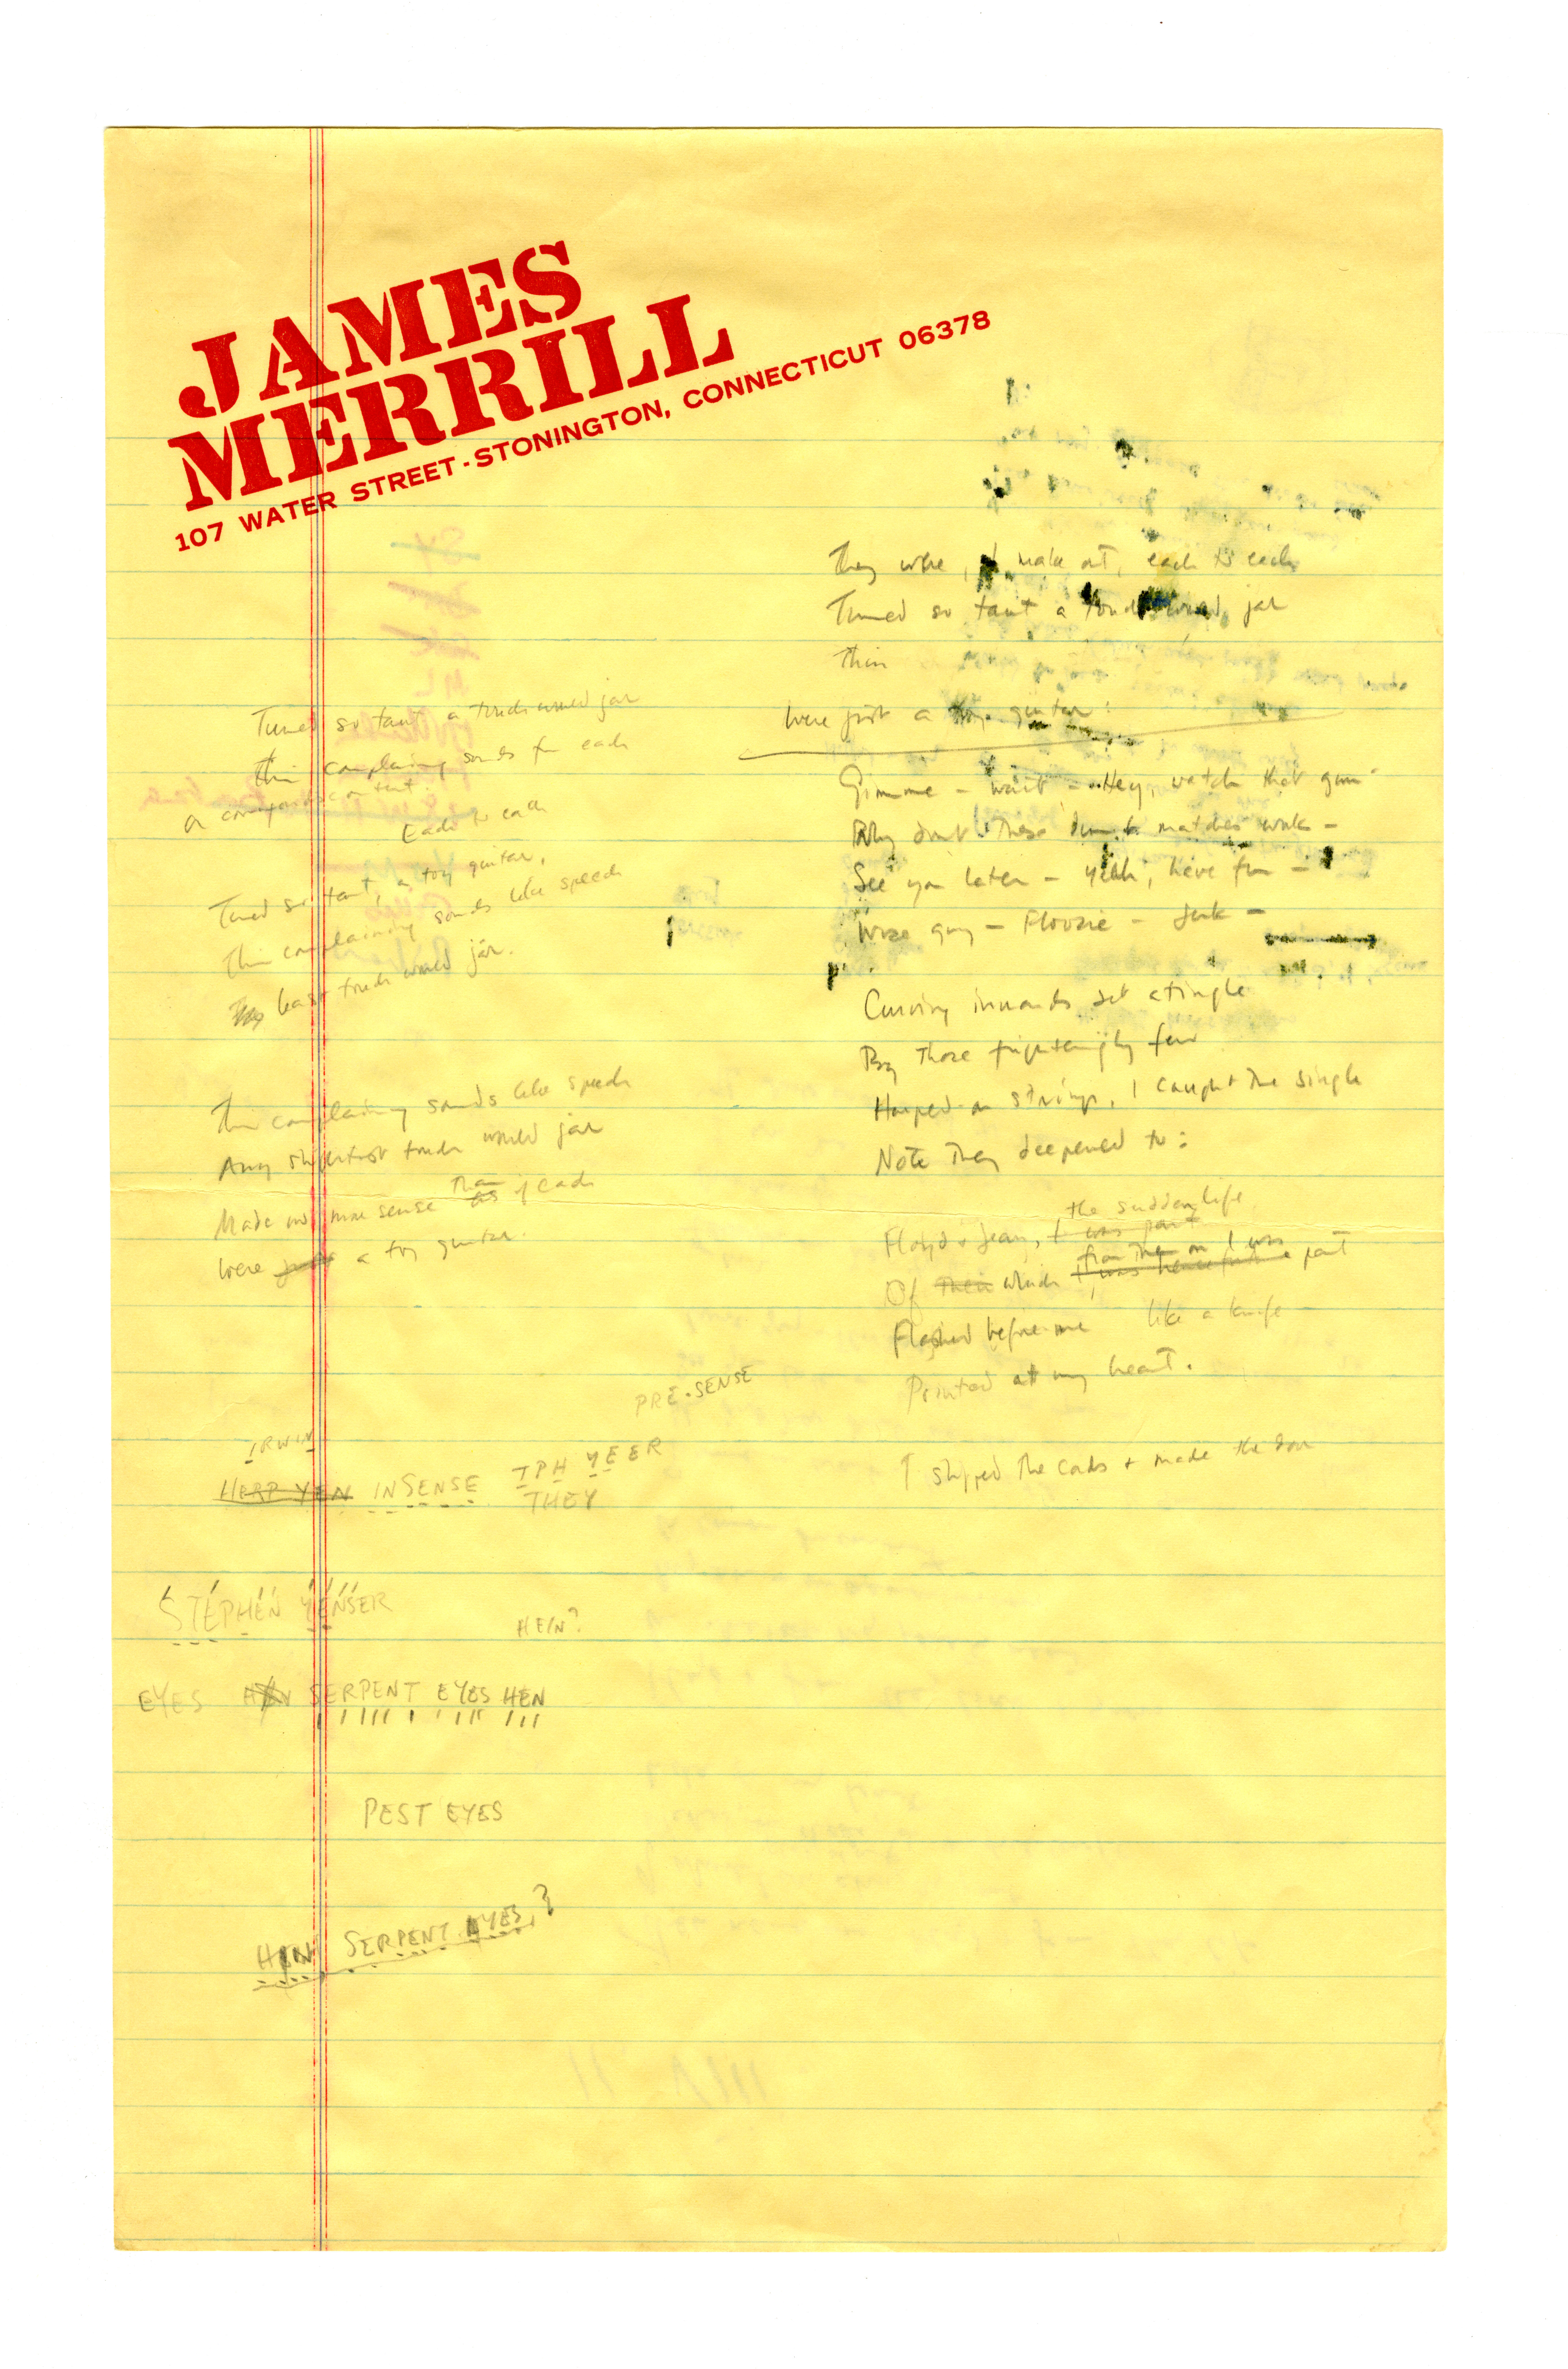 JAMES
MERRILL
107 WATER STREET · STONINGTON, CONNECTICUT 06378
Tuned so taut a touch would jar
Thin complaining sounds for each
a
Each to each
Tuned so taut, a toy guitar,
Thin complaining sounds like speech
least touch would jar.
Thin complaining sounds like speech
Any slightest touch would jar
Made no more sense than as if each
Were just a toy guitar.
PRE-SENSE
IRWIN
HERP YEN INSENSE TPH YEER
THEY
STEPHEN YENSER
HEIN?
EYES SERPENT EYES HEN
PEST EYES
SERPENT EYES,?
They were, I make out, each to each
Tuned so taut a touch would jar
Thin
Were just a toy guitar:
Gimme – wait – Hey, watch that gun
Why don't these damn matches work –
See you later – Yeah, have fun –
Wise guy – Floozie – Jerk –
Curving inwards set atingle
By those frighteningly few
Harped-on strings, I caught the single
Note they deepened to:
the sudden life
Floyd + Jean, I was part
from then on I was
Of their which I was henceforth part
Flashed before me like a knife
Pointed at my heart.
I slipped the cards + made the door